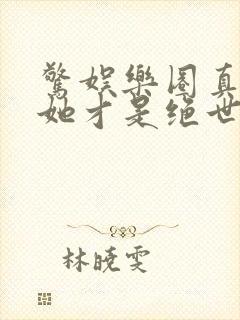 驚娛樂圈真
她才是絕世
林曉雯